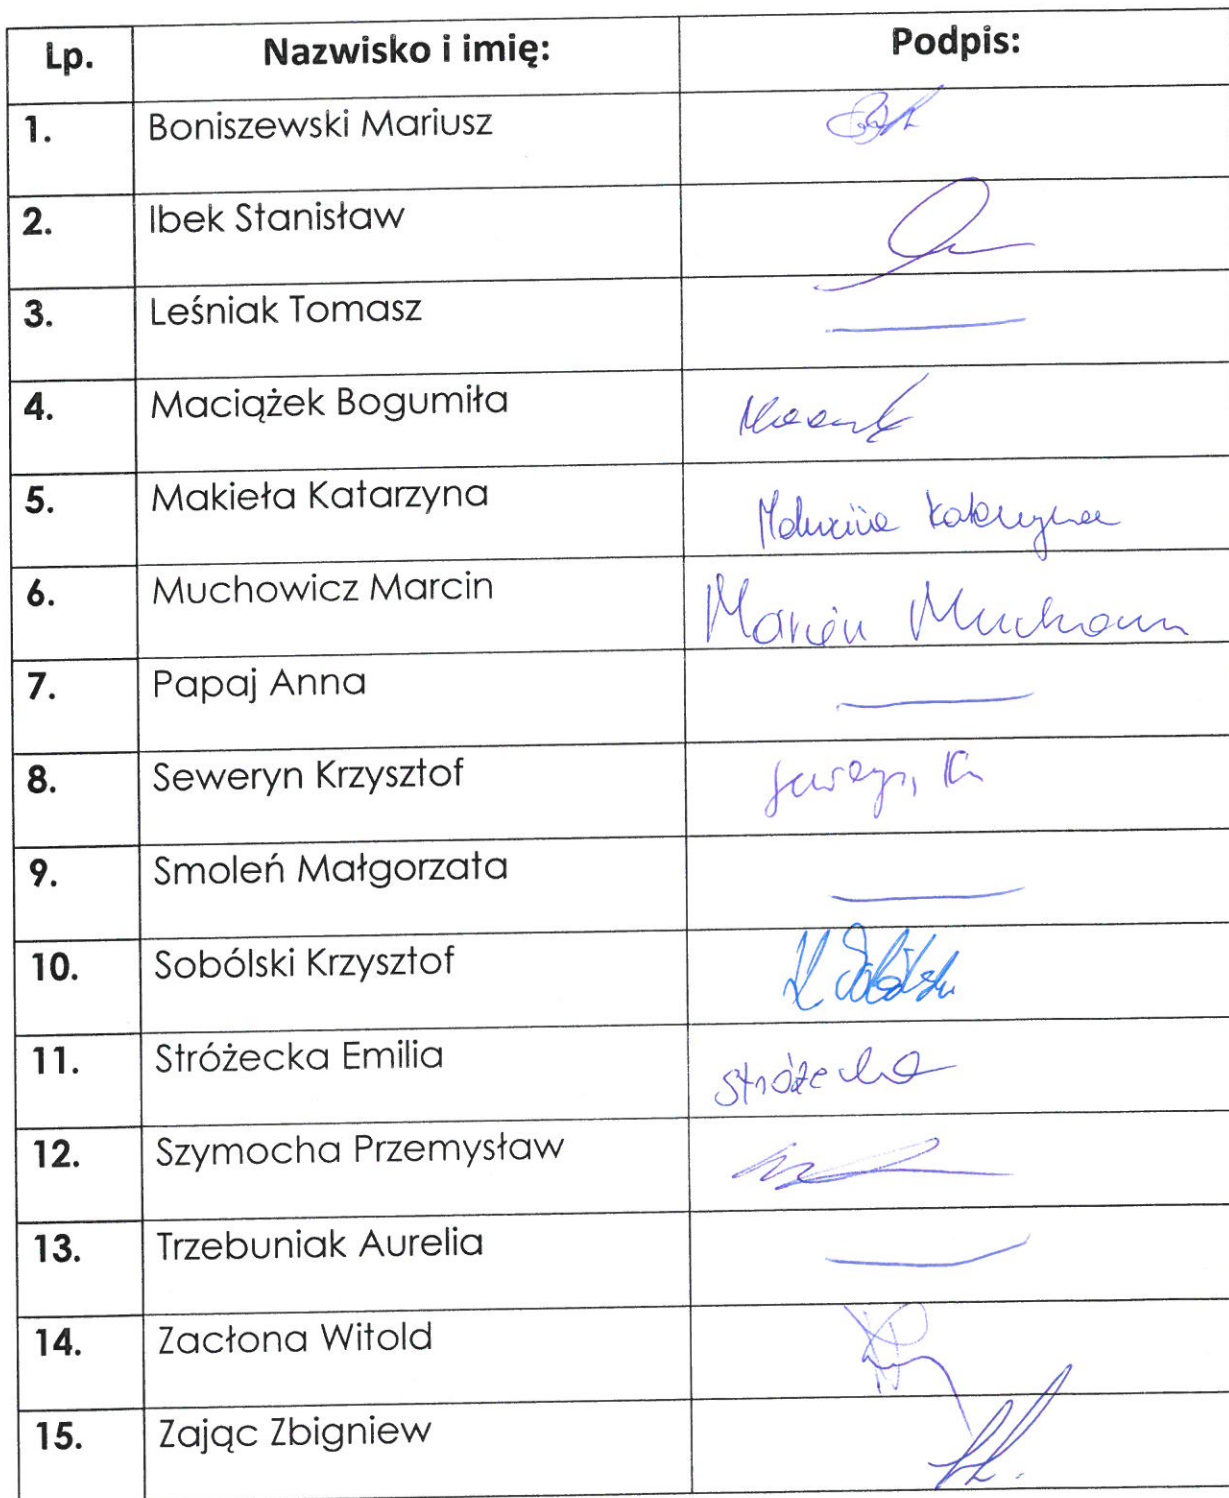 Lp. Nazwisko i imię: Podpis:
1. Boniszewski Mariusz
2. Ibek Stanisław
3. Leśniak Tomasz
4. Maciążek Bogumiła
5. Makieła Katarzyna Katarzyna
6. Muchowicz Marcin Marcin
7. Papaj Anna
8. Seweryn Krzysztof
9. Smoleń Małgorzata
10. Sobólski Krzysztof K Sobólski
11. Stróżecka Emilia Stróżecka
12. Szymocha Przemysław
13. Trzebuniak Aurelia
14. Zacłona Witold
15. Zając Zbigniew